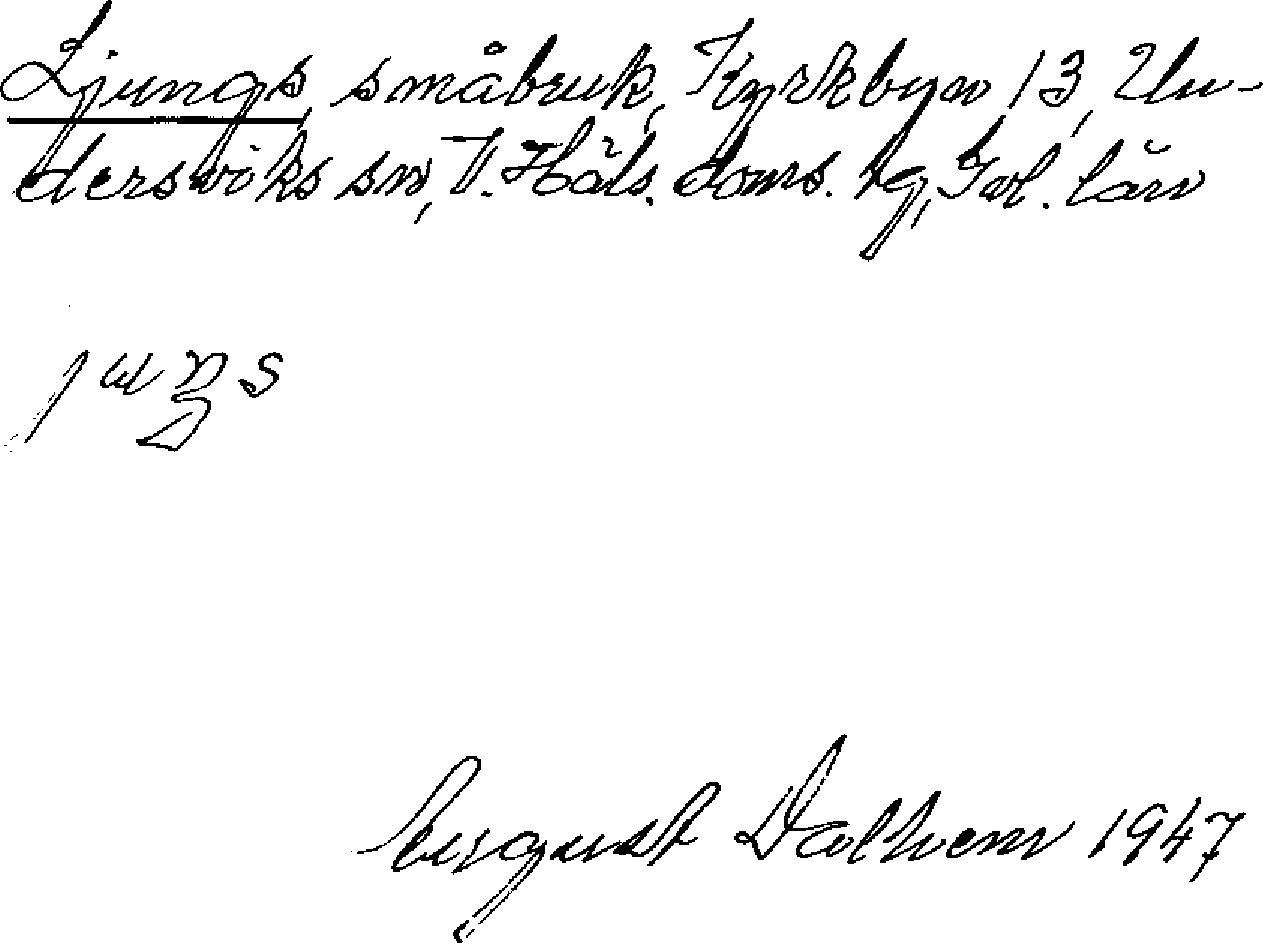 Ljungs småbruk, Kyrkbyn 13, Un-
dersviks sn, V. Häls. doms. tg, Gvl. län
August Dalhem 1947